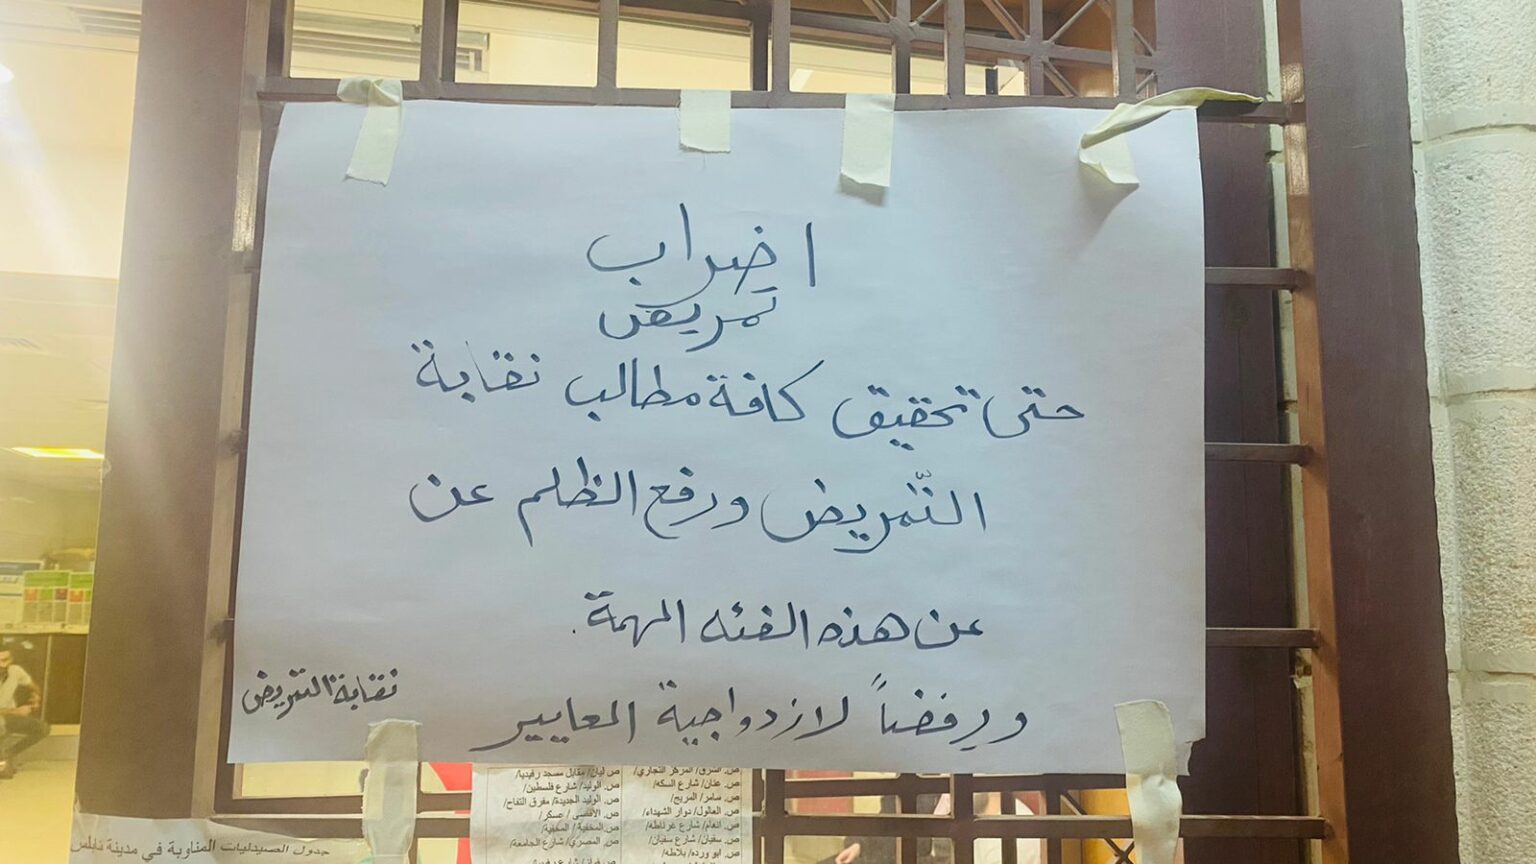 اضراب
تمريض
حتى تحقيق كافة مطالب نقابة
التّمريض ورفع الظلم عن
عن هذه الفئه المهمة.
ورفضاً لازدواجية المعايير
نقابة التمريض
ص. الشرق/ المركز التجاري/
ص. عنان/ شارع السكه/
ص. سامر/ المريج/
ص. العالول/ دوار الشهداء/
ص. انعام/ شارع غرناطه/
ص. سفيان/ شارع سفيان/
ص. ابو ورده/ بلاطه/
ص. ليان/ مقابل مسجد رفيديا/
ص. الوليد/ شارع فلسطين/
ص. الوليد الجديدة/ مفرق التفاح/
ص. الأقصى / عسكر/
ص. المخفية/ المخفية/
ص. المصري/ شارع الجامعة/
جدول الصيدليات المناوبة في مدينة نابلس